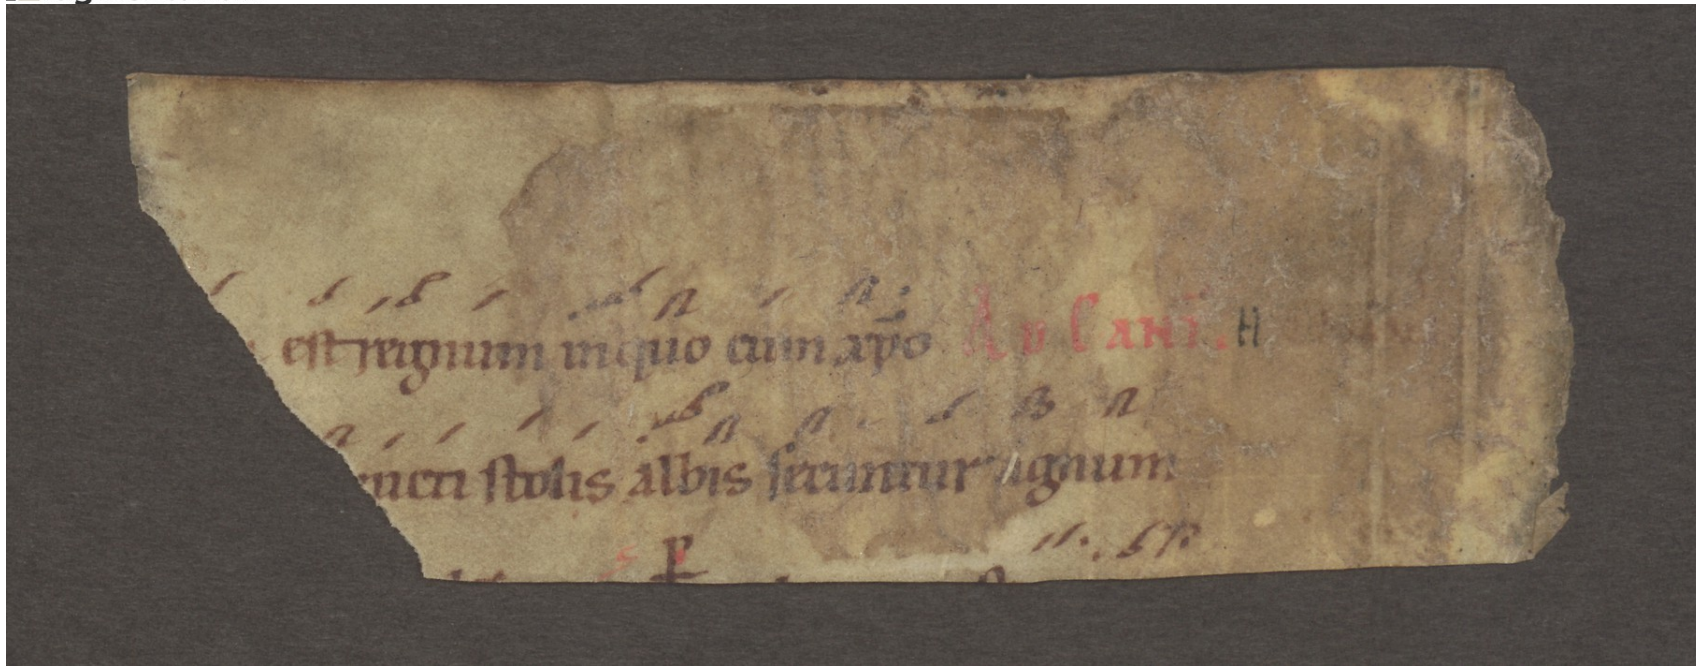 est regnum in quo cum xp̄o A v L ant̄. H
ncti stolis albis secuntur agnum